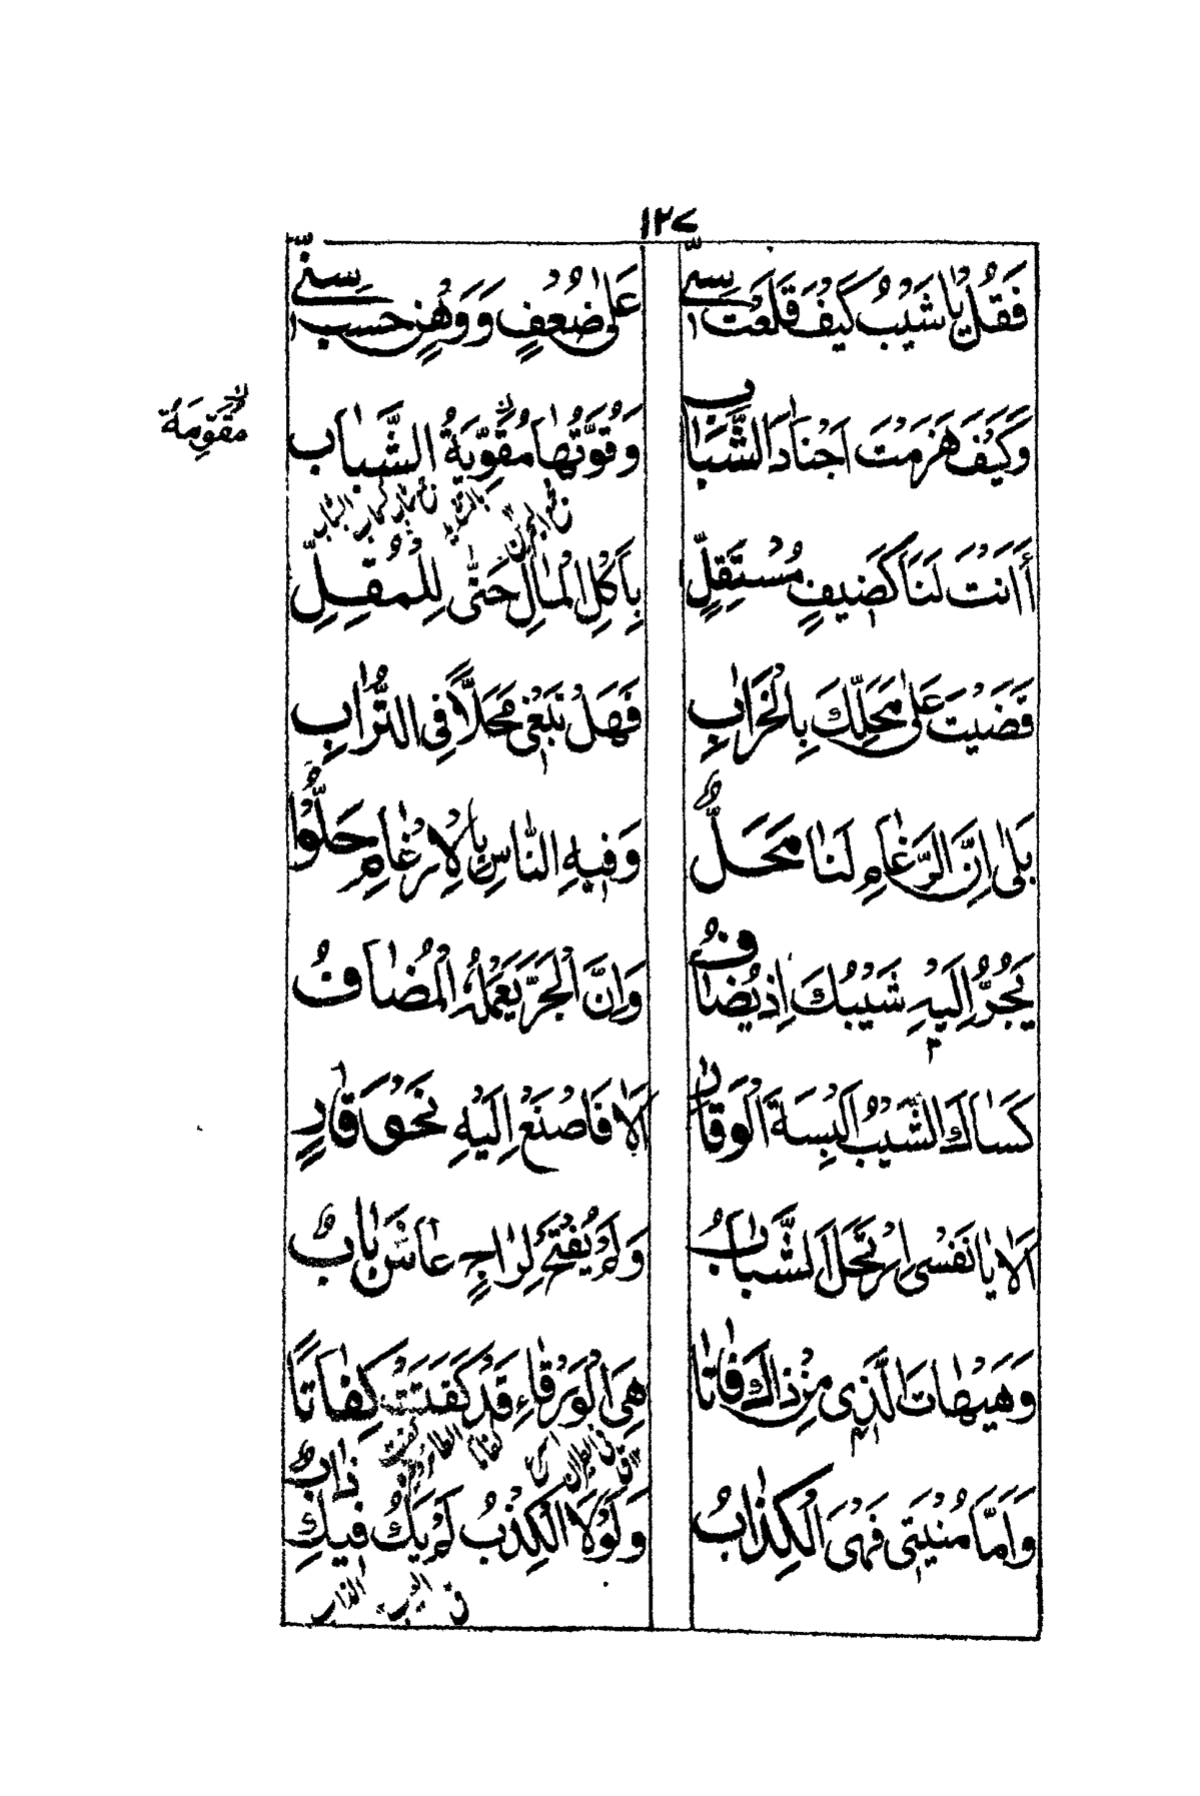 ١٢٧
فَقُلْ يَا شَيْبُ كَيْفَ قَلَعْتَ سِنِّي
عَلٰى ضُعْفٍ وَوَهْنٍ حَسْبَ سِنِّي
وَكَيْفَ هَزَمْتَ اَجْنَادَ الشَّبَابِ
وَقُوَّتُهَا مُقَوِّيَةُ الشَّبَابِ
مُقَوِّمَةُ
أَاَنْتَ لَنَا كَضَيْفٍ مُسْتَقِلٍّ
بِاَكْلِ الْمَالِ حَتّٰى لِلْمُقِلِّ
قَضَيْتَ عَلٰى مَحَلِّكَ بِالْخَرَابِ
فَهَلْ تَبْغِى مَحَلًّا فِى التُّرَابِ
بَلٰى اِنَّ الرَّغَامِ لَنَا مَحَلُّ
وَفِيهِ النَّاسُ بِالْاِرْغَامِ حَلُّوا
يَجُرُّ اِلَيْهِ شَيْبُكَ اِذْ يُضَافُ
وَاِنَّ الْجَرَّ يَعْمَلُهُ الْمُضَافُ
كَسَاكَ الشَّيْبُ اَلْبِسَةَ الْوَقَارِ
اَلَا فَاصْنَعْ اِلَيْهِ نَحْوَ قَارٍ
اَلَا يَا نَفْسِى ارْتَحَلَ الشَّبَابُ
وَلَمْ يُفْتَحْ لِرَاجٍ عَاشَ بَابُ
وَهَيْهَاتَ الَّذِى مِنْ ذَاكَ فَاتَا
هِىَ الْوَرْقَاءِ قَدْ كَفَتَتْ كِفَاتَا
وَاَمَّا مُنْيَتِى فَهْىَ الْكِذَابُ
وَلَوْلَا الْكِذْبُ لَمْ يَكُ فِيكِ ذَابُ